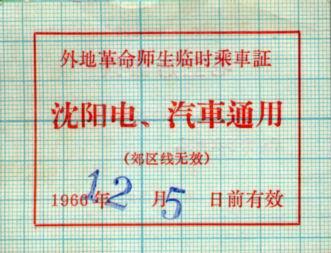 外地革命师生临时乘車証
沈阳电、汽車通用
(郊区线无效)
1966年12月5日前有效